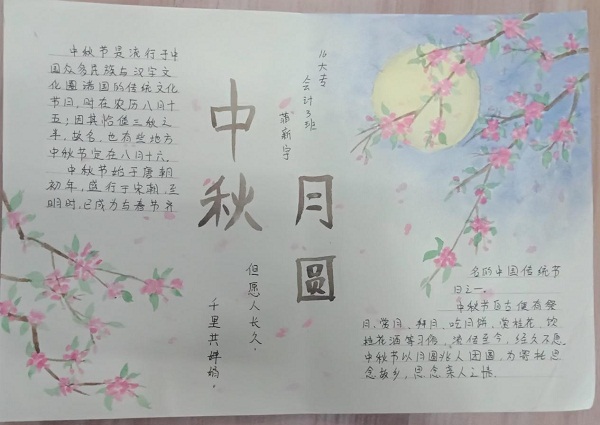 中秋节是流行于中
国众多民族与汉字文
化圈诸国的传统文化
节日,时在农历八月十
五;因其恰值三秋之
半,故名,也有些地方
中秋节定在八月十六,
中秋节始于唐朝
初年,盛行于宋朝,至
明时,已成为与春节齐
中秋
月圆
16大专
会计3班
新宇
但愿人长久,
千里共婵娟。
名的中国传统节
日之一。
中秋节自古便有祭
月、赏月、拜月、吃月饼、赏桂花、饮
桂花酒等习俗,流传至今,经久不息
中秋节以月圆兆人团圆,为寄托思
念故乡,思念亲人之情.